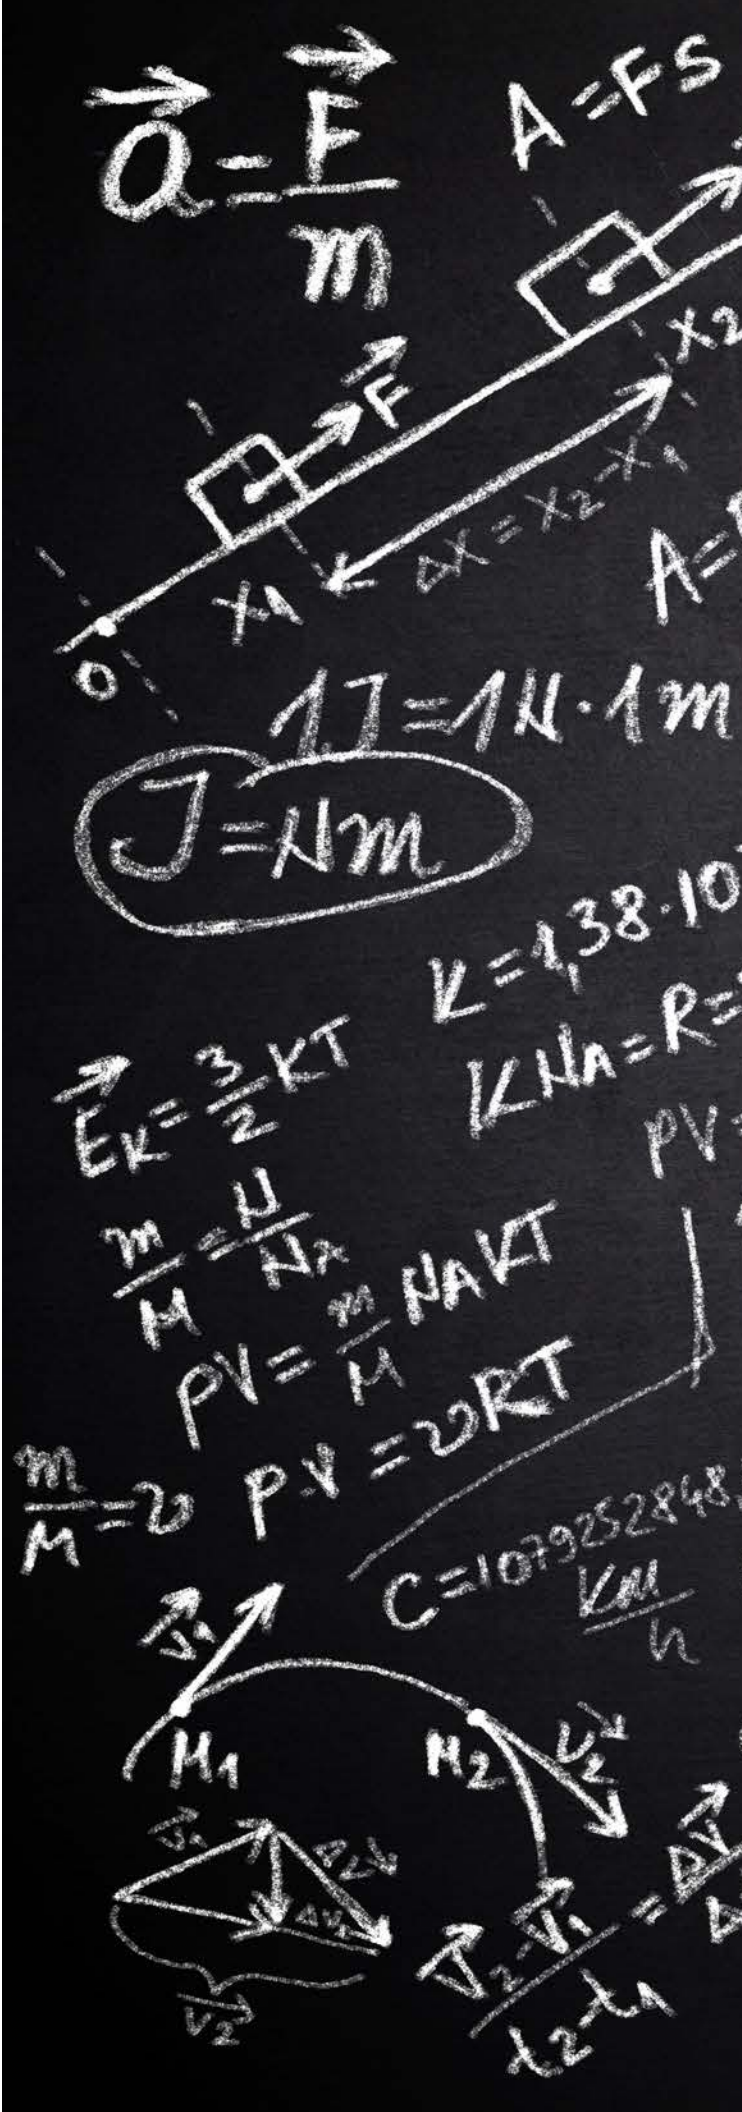 a⃗ = F⃗/m
A = FS
F⃗
X2
X1
ΔX = X2 - X1
A =
0
1J = 1N · 1m
J = Nm
K = 1,38 · 10
KNA = R =
E⃗K = 3/2 KT
PV =
m/M = N/NA
PV = m/M NAKT
m/M = υ
P·V = υRT
C = 1079252848,
Km/h
V⃗1
M1
M2
V⃗2
V⃗1
ΔV⃗
V⃗2
V⃗2 - V⃗1 / t2 - t1 = ΔV⃗/Δ